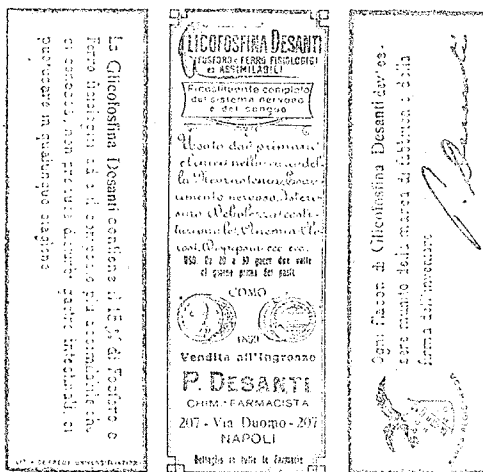 La Glicofosfina Desanti contiene il 15 % di Fosforo e
Ferro fisiologici ed è il composto più assimilabile che
si conosca, non procura disturbi gastro intestinali, si
può usare in qualunque stagione
GLICOFOSFINA DESANTI
FOSFORO e FERRO FISIOLOGICI
ed ASSIMILABILI
Ricostituente completo
del sistema nervoso
e del sangue
Usato dai primari
clinici nella cura del-
la Neurastenia, Esau-
rimento nervoso, Isteri-
smo, Debolezza costi-
tuzionale, Anemia, Clo-
rosi, Dispepsia ecc. ecc.
USO. Da 20 a 30 gocce due volte
al giorno prima dei pasti
COMO
1899
Vendita all'Ingrosso
P. DESANTI
CHIM. FARMACISTA
207 - Via Duomo - 207
NAPOLI
Dettaglio in tutte le Farmacie
Ogni flacon di Glicofosfina Desanti dev'es-
sere munito della marca di fabbrica e della
firma dell'inventore
P. Desanti